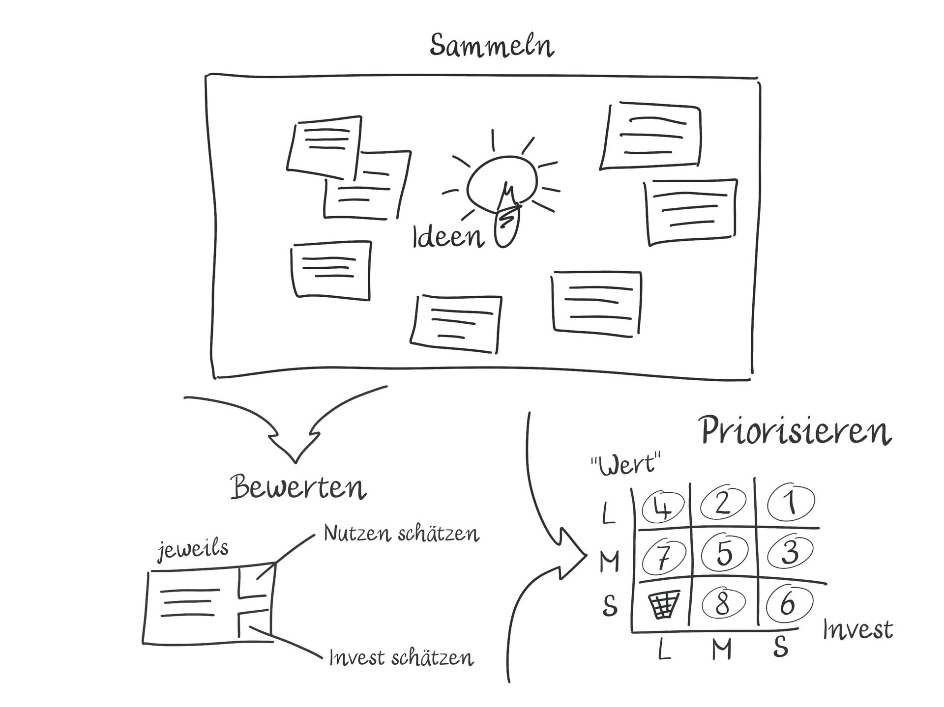 Sammeln
Ideen
Bewerten
jeweils
Nutzen schätzen
Invest schätzen
Priorisieren
"Wert"
L 4 2 1
M 7 5 3
S 8 6
Invest
L M S